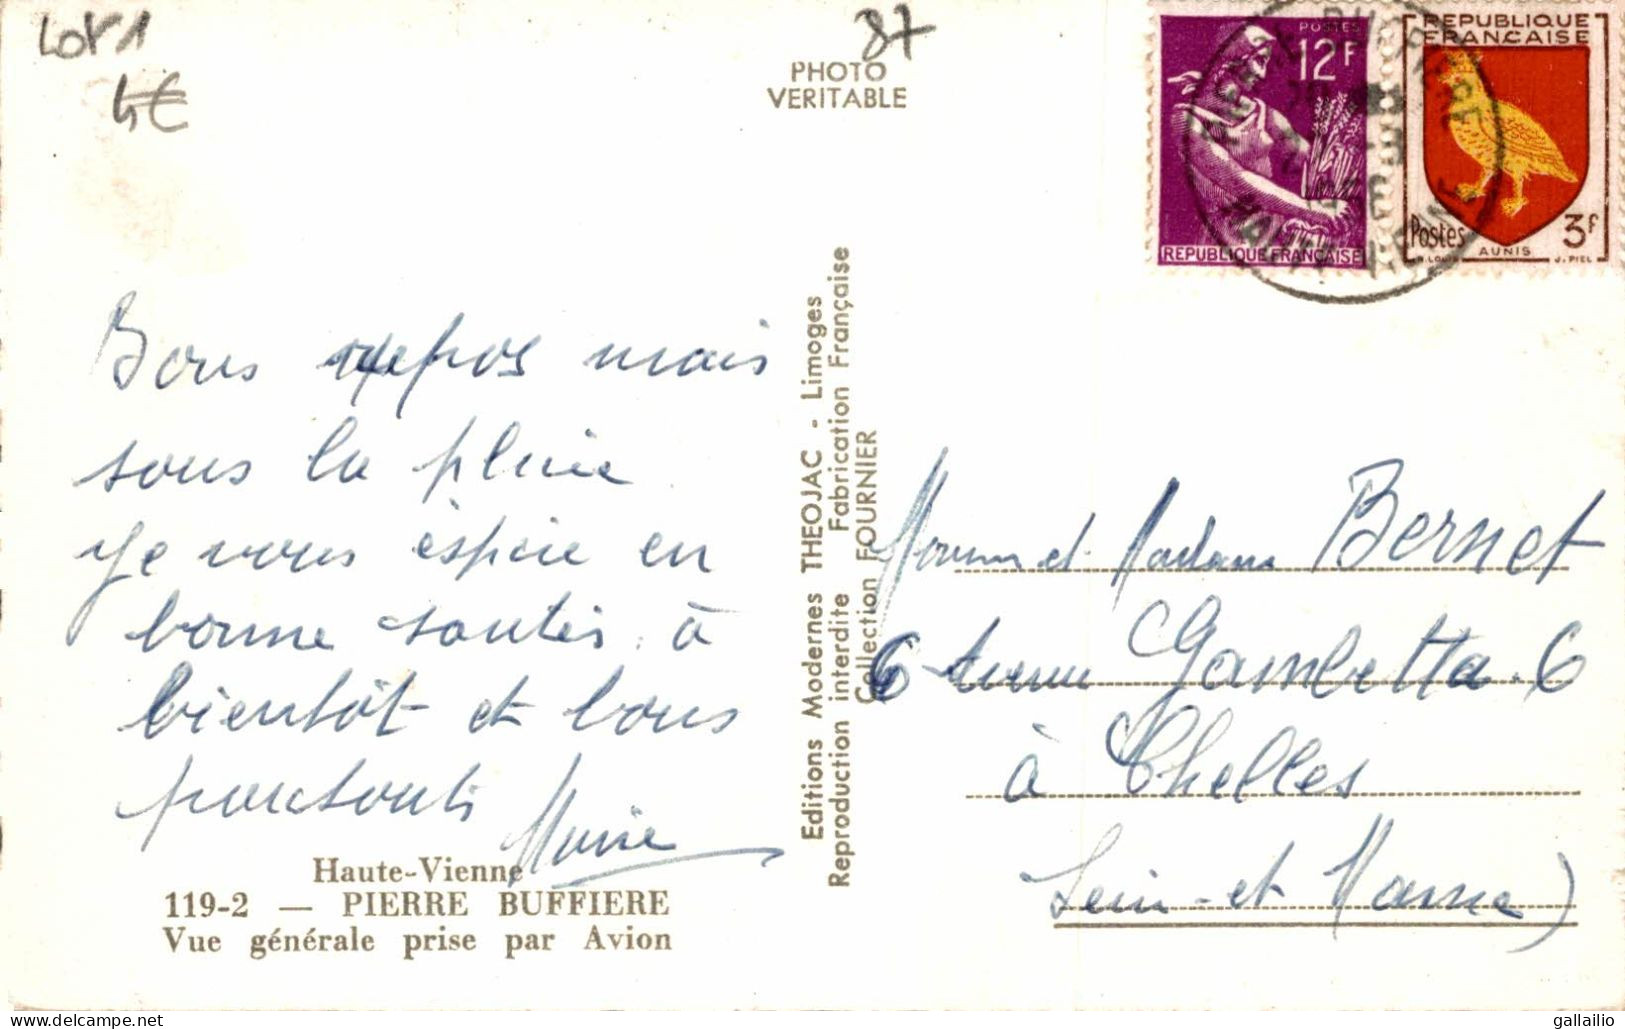 Lot 1
4€
87
PHOTO
VERITABLE
POSTES
12F
REPUBLIQUE FRANÇAISE
REPUBLIQUE
FRANÇAISE
Postes
3f
AUNIS
J. PIEL
Bons repos mais
sous la pluie
je vous espère en
bonne santés à
bientôt et bons
partout
Marie
Haute-Vienne
119-2 — PIERRE BUFFIERE
Vue générale prise par Avion
Editions Modernes THEOJAC - Limoges
Reproduction interdite Fabrication Française
Collection FOURNIER
Monsieur et Madame Bernet
6 Avenue Gambetta. 6
à Chelles
Seine-et Marne)
gallailio